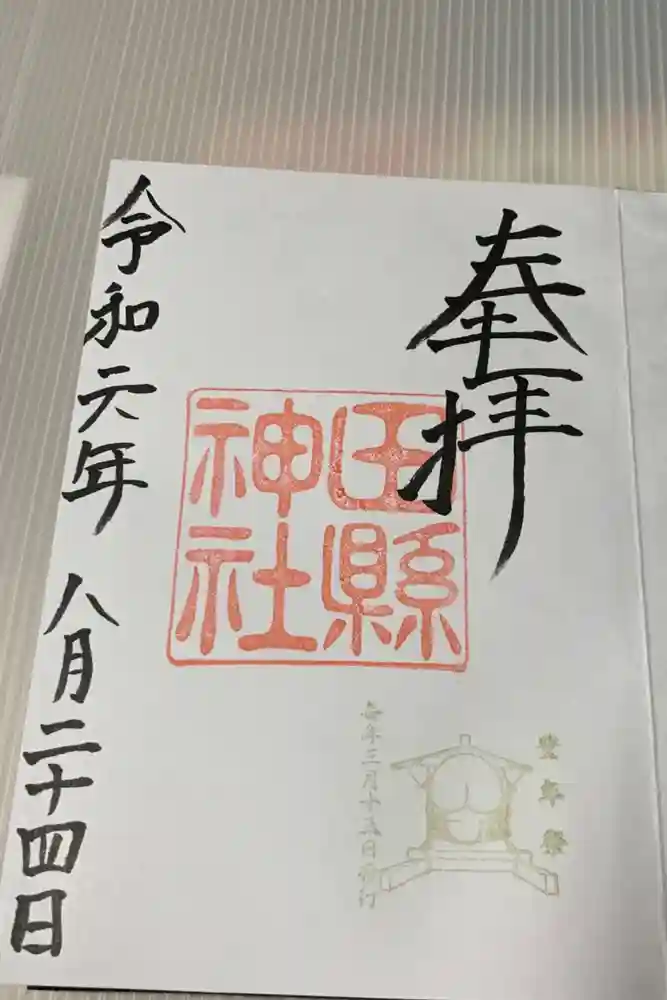 奉拝
田縣
神社
豊年祭
毎年三月十五日斎行
令和六年 八月二十四日